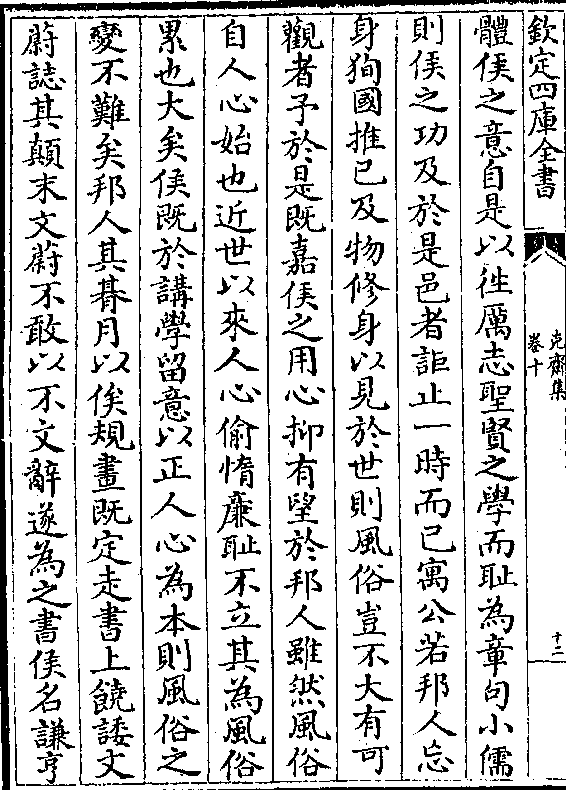 欽定四庫全書
克齋集
卷十
十二
體侯之意自是以徃厲志聖賢之學而耻為章句小儒
則侯之功及於是邑者詎止一時而已寓公若邦人忘
身狥國推已及物修身以見於世則風俗豈不大有可
觀者予於是既嘉侯之用心抑有望於邦人雖然風俗
自人心始也近世以來人心偷惰廉耻不立其為風俗
累也大矣侯既於講學留意以正人心為本則風俗之
變不難矣邦人其朞月以俟規畫既定走書上饒諉文
蔚誌其顛末文蔚不敢以不文辭遂為之書侯名謙亨